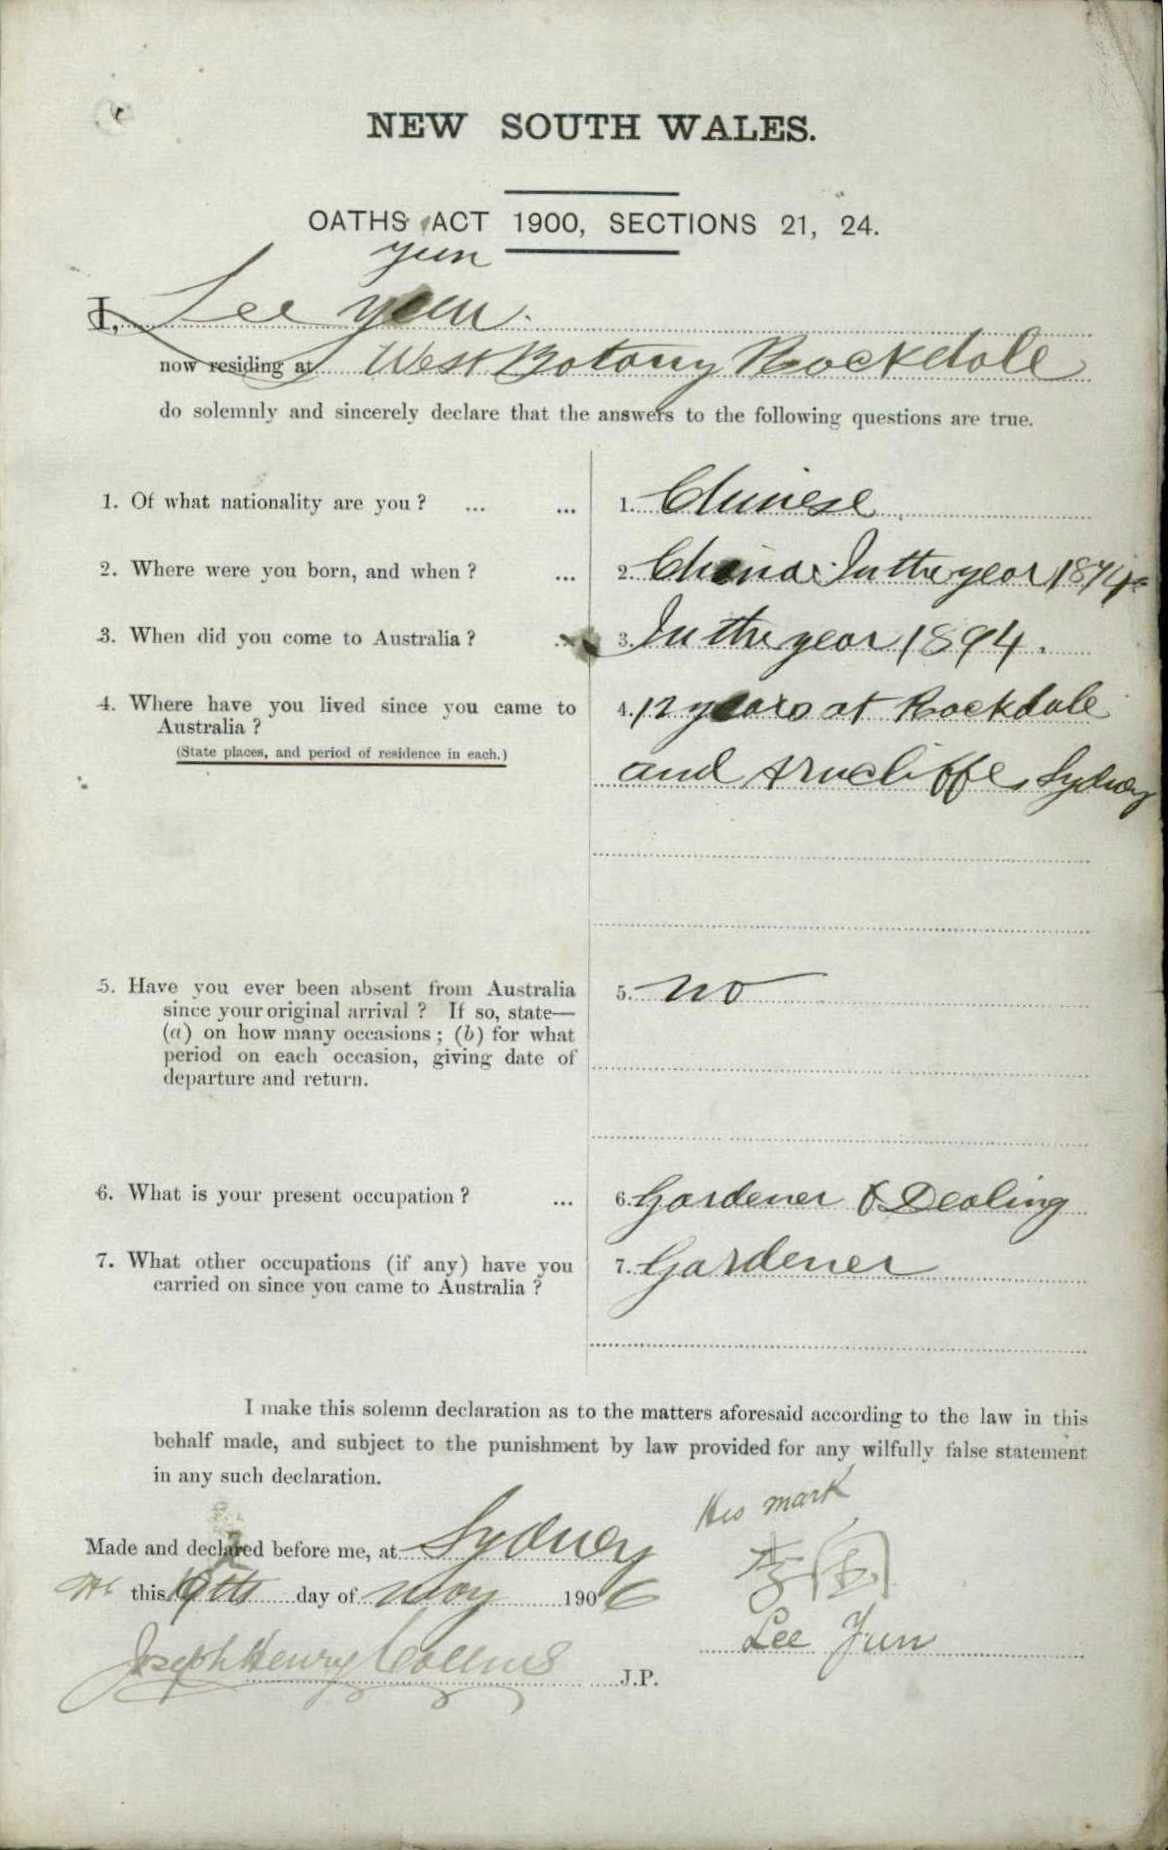 NEW SOUTH WALES.
OATHS ACT 1900, SECTIONS 21, 24.
Yun
I, Lee Yuu.
now residing at West Botany Rockdale
do solemnly and sincerely declare that the answers to the following questions are true.
1. Of what nationality are you? ... ... 1. Chinese
2. Where were you born, and when? ... 2. China. In the year 1874
3. When did you come to Australia? ... 3. In the year 1894.
4. Where have you lived since you came to 4. 12 years at Rockdale
Australia?
(State places, and period of residence in each.)
and Arncliffe, Sydney
5. Have you ever been absent from Australia 5. No
since your original arrival? If so, state—
(a) on how many occasions; (b) for what
period on each occasion, giving date of
departure and return.
6. What is your present occupation? ... 6. Gardener & Dealing
7. What other occupations (if any) have you 7. Gardener
carried on since you came to Australia?
I make this solemn declaration as to the matters aforesaid according to the law in this
behalf made, and subject to the punishment by law provided for any wilfully false statement
in any such declaration.
His mark
Made and declared before me, at Sydney
this 19th day of May 1906
李
Lee Yun
Joseph Henry Collins J.P.